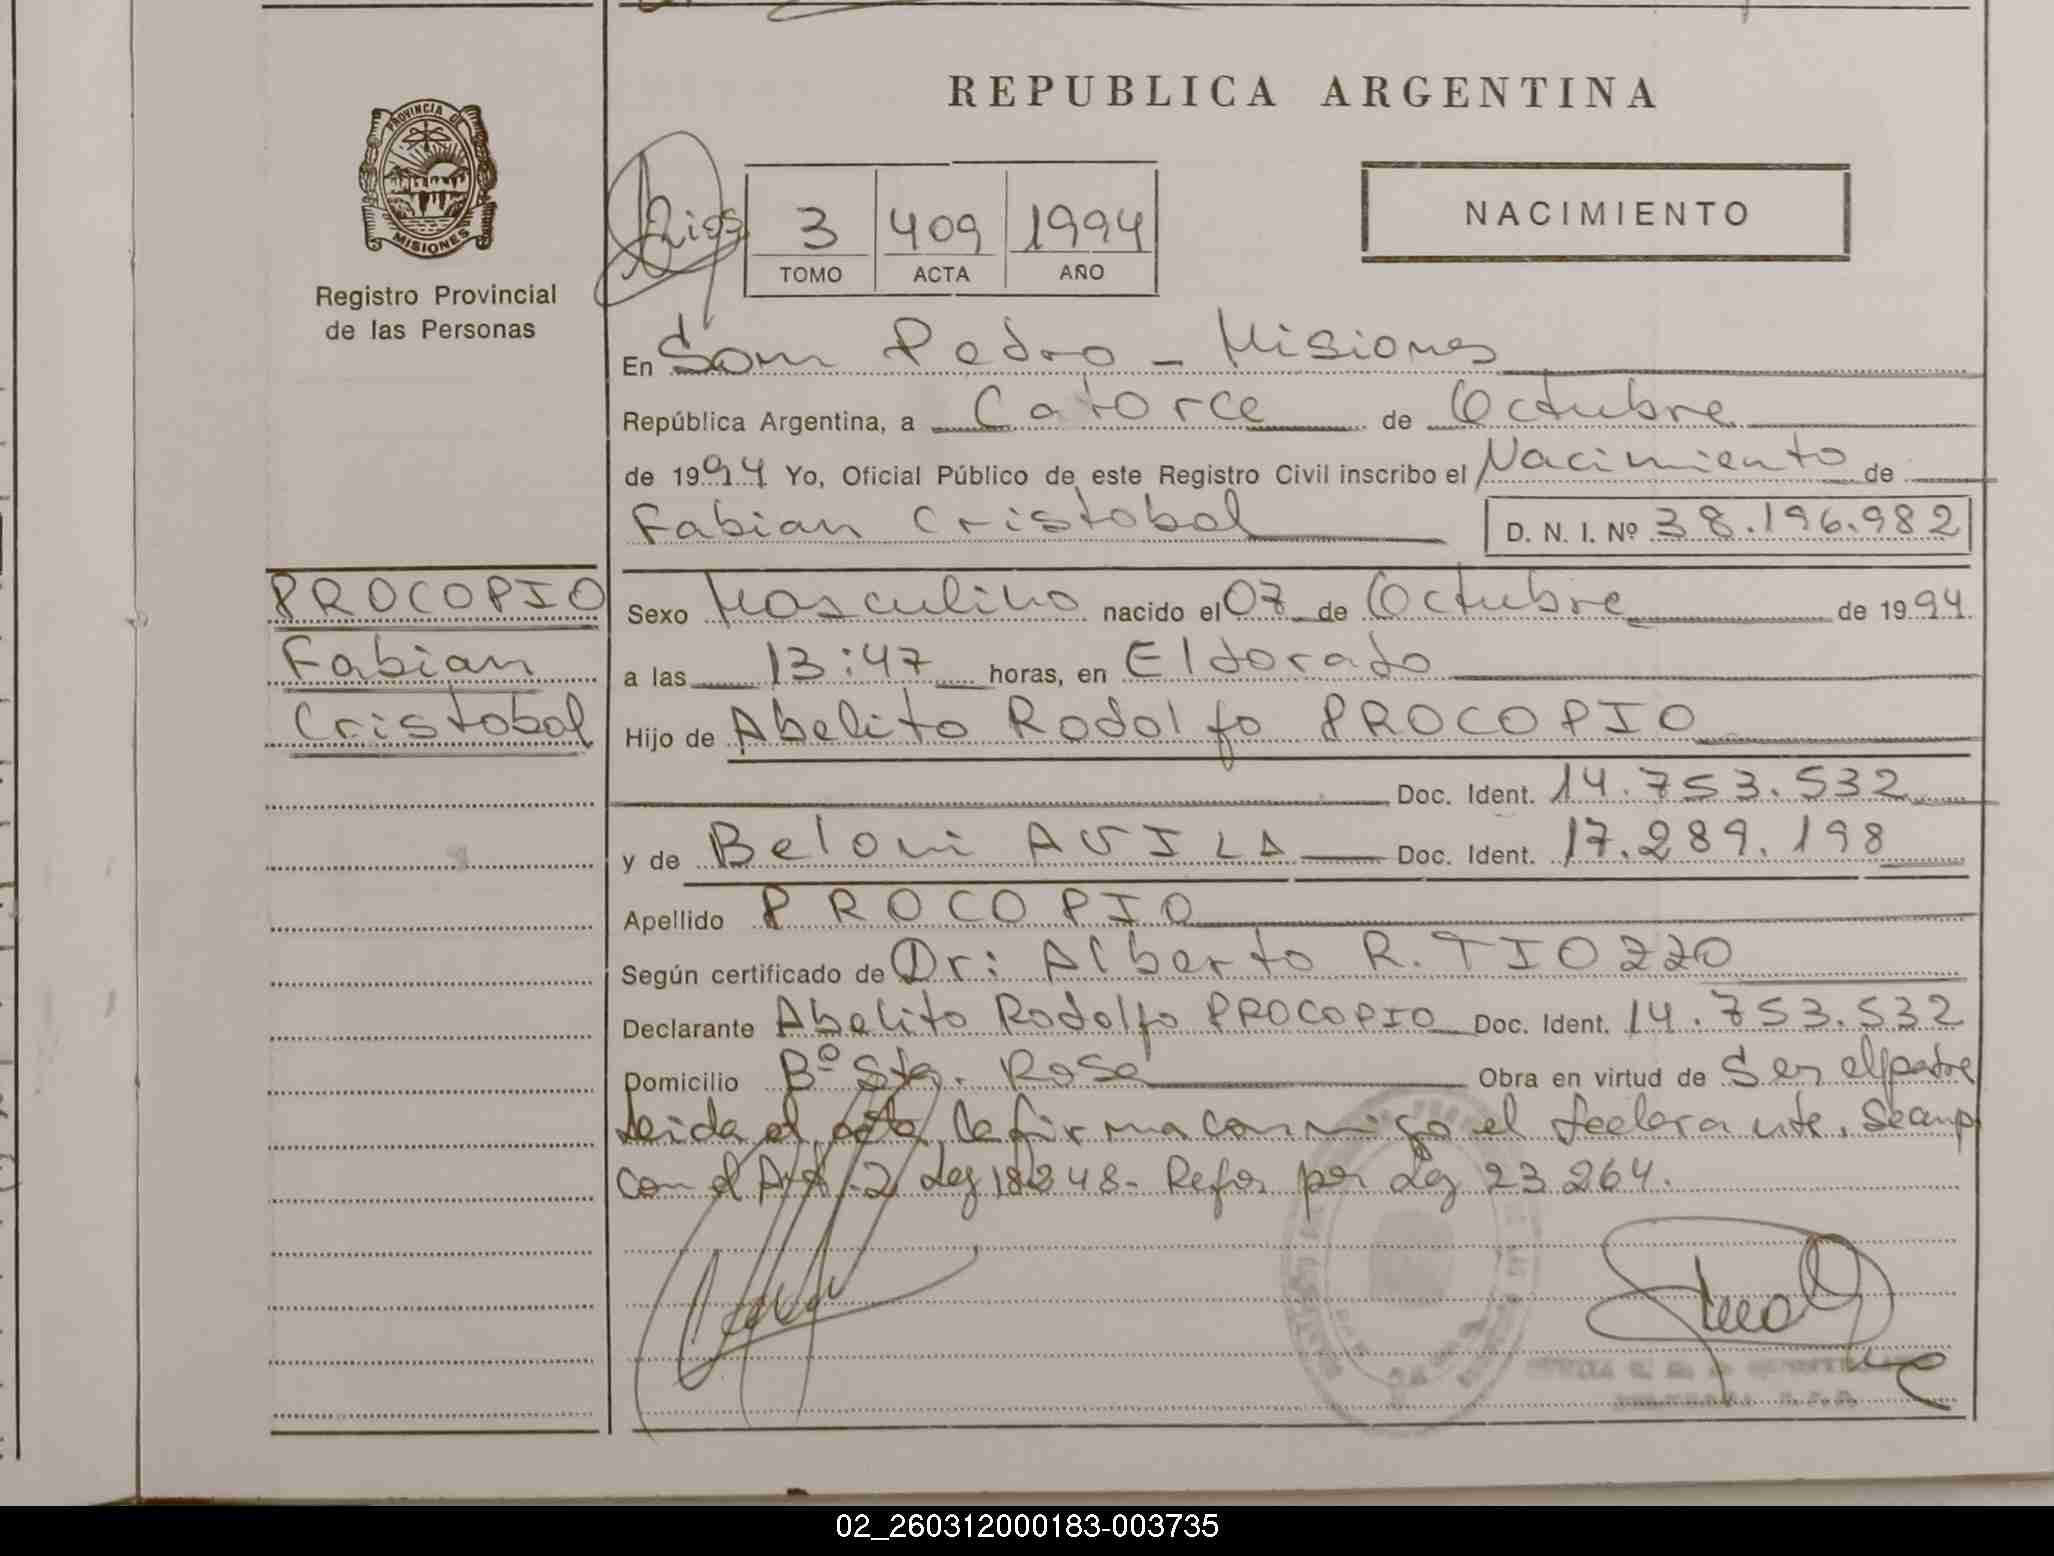 REPUBLICA ARGENTINA
PROVINCIA DE
MISIONES
Registro Provincial
de las Personas
Rios
3 409 1994
TOMO ACTA AÑO
NACIMIENTO
En San Pedro - Misiones
República Argentina, a Catorce de Octubre
de 1994 Yo, Oficial Público de este Registro Civil inscribo el Nacimiento de
Fabian Cristobal D. N. I. Nº 38.196.982
PROCOPIO
Fabian
Cristobal
Sexo Masculino nacido el 07 de Octubre de 1994
a las 13:47 horas, en Eldorado
Hijo de Abelito Rodolfo PROCOPIO
Doc. Ident. 14.753.532
y de Beloni AVILA Doc. Ident. 17.289.198
Apellido PROCOPIO
Según certificado de Dr: Alberto R. TIOZZO
Declarante Abelito Rodolfo PROCOPIO Doc. Ident. 14.753.532
Domicilio Bº Sta. Rosa Obra en virtud de Ser el padre
Leida el acta, la firma conmigo el declarante. Se cump
con el Art. 2 Ley 18248- Refor por Ley 23.264.
02_260312000183-003735